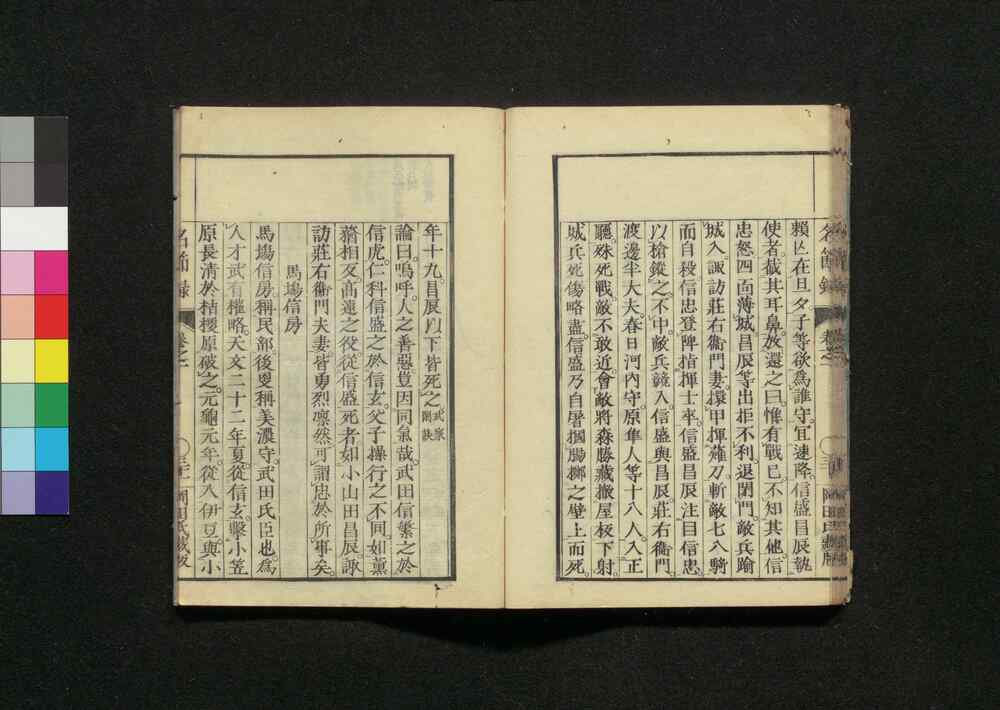 賴亾在旦夕子等欲爲誰守冝速降信盛昌辰執
使者截其耳鼻放還之曰惟有戰已不知其他信
忠怒四面薄城昌辰等出拒不利退閉門敵兵踰
城入諏訪莊右衞門妻擐甲揮薙刀斬敵七八騎
而自殺信忠登陴指揮士卒信盛昌辰注目信忠
以槍鏦之不中敵兵競入信盛與昌辰莊右衞門
渡邊半大夫春日河內守原隼人等十八人入正
廳殊死戰敵不敢近會敵將森勝藏撤屋板下射
城兵死傷略盡信盛乃自屠摑腸擲之壁上而死
年十九昌辰以下皆死之武家閒談
論曰嗚呼人之善惡豈因同氣哉武田信繁之於
信虎仁科信盛之於信玄父子操行之不同如薰
蕕相反高遠之役從信盛死者如小山田昌辰諏
訪莊右衞門夫妻皆勇烈凛然可謂忠於所事矣
馬場信房
馬場信房稱民部後更稱美濃守武田氏臣也爲
人才武有權略天文二十二年夏從信玄擊小笠
原長淸於桔梗原破之元龜元年從入伊豆與小
名節錄
卷之二
岡田氏藏版